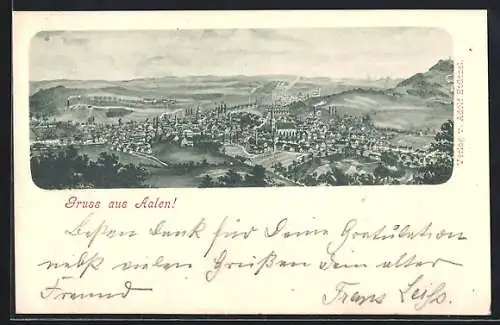 Gruss aus Aalen!
Besten Dank für Deine Gratulation
nebst vielen Grüßen Dein alter
Freund Franz
Verlag v. Adolf